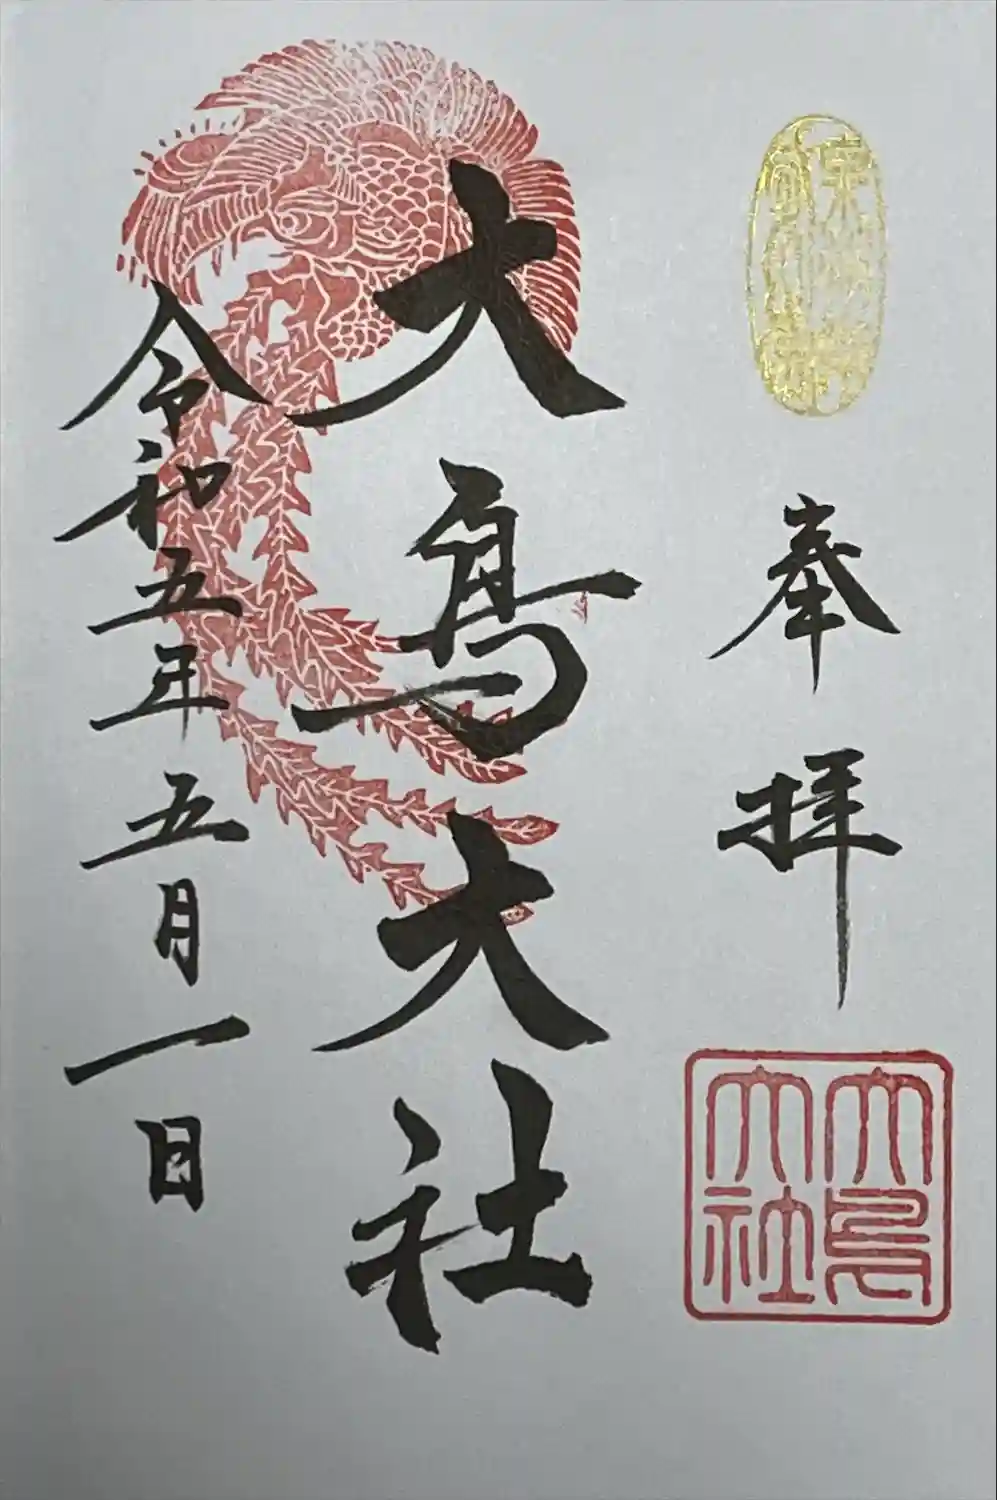 奉拝
大鳥大社
令和五年五月一日
大鳥
大社